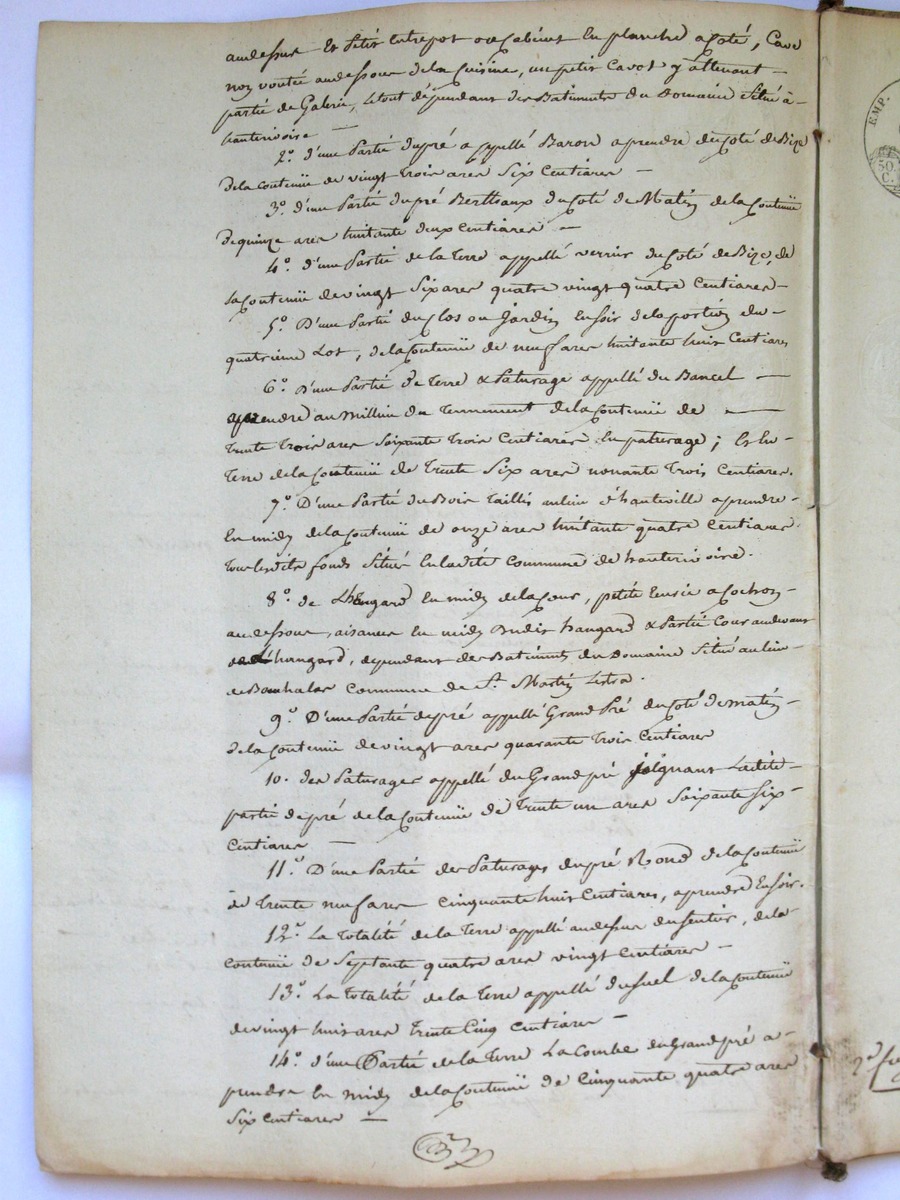 au dessus Et petit Entrepot ou Cabinet En planche a Coté, Cave
non voutée au dessous de la Cuisine, un petit Cavot y attenant —
partie de Galerie, le tout dépendant des Batiments du Domaine Situé à
hauterivoire —
2.° d'une Partie du pré appellé Baron a prendre du Coté de Bize
de la Contenue de vingt trois ares Six Centiares —
3.° d'une Partie du pré Bertheaux du Coté de Matin de la Contenue
de quinze ares huitante deux Centiares —
4.° d'une Partie de la Terre appellé verrin du Coté de Bize, de
la Contenue de vingt Six ares quatre vingt quatre Centiares —
5.° D'une Partie du Clos ou Jardin En Soir de la portion du
quatrieme Lot, de la Contenue de neuf ares huitante huit Centiares
6.° D'une Partie de Terre & Paturage appellé du Bancel —
a prendre au Millieu du Tennement de la Contenue de —
Trente Trois ares Soixante Trois Centiares En paturage; Et En
Terre de la Contenue de Trente Six ares nonante Trois Centiares.
7.° D'une Partie du Bois Taillis au lieu d'hauteville a prendre
En midy de la Contenue de onze ares huitante quatre Centiares.
Tous lesdits fonds Situés En ladite Commune de hauterivoire.
8.° de L'hEngard En midy de la Cour, petite Ecurie a Cochon
au dessous, aisances En midy Dudit hangard & Partie Cour au devant
L'hangard, dépendant des Batiments du Domaine Situé au lieu
de Commune de S.t Martin Lestra.
9.° D'une Partie de pré appellé Grand Pré du Coté de matin
de la Contenue de vingt ares quarante Trois Centiares
10. des Paturages appellé du Grand pré Joignant Ladite
partie de pré de la Contenue de Trente un ares Soixante Six
Centiares —
11.° D'une Partie des Paturages du pré Rond de la Contenue
de Trente neuf ares Cinquante huit Centiares, a prendre En Soir.
12.° La Totalité de la Terre appellé au dessus du Sentier, de la
Contenue de Septante quatre ares vingt Centiares —
13.° La Totalité de la Terre appellé du Suel de la Contenue
de vingt huit ares Trente Cinq Centiares —
14.° d'une Partie de la Terre La Combe du Grand pré a
prendre En midy de la Contenue de Cinquante quatre ares
Six Centiares —
EMP.
50
C.
2.e